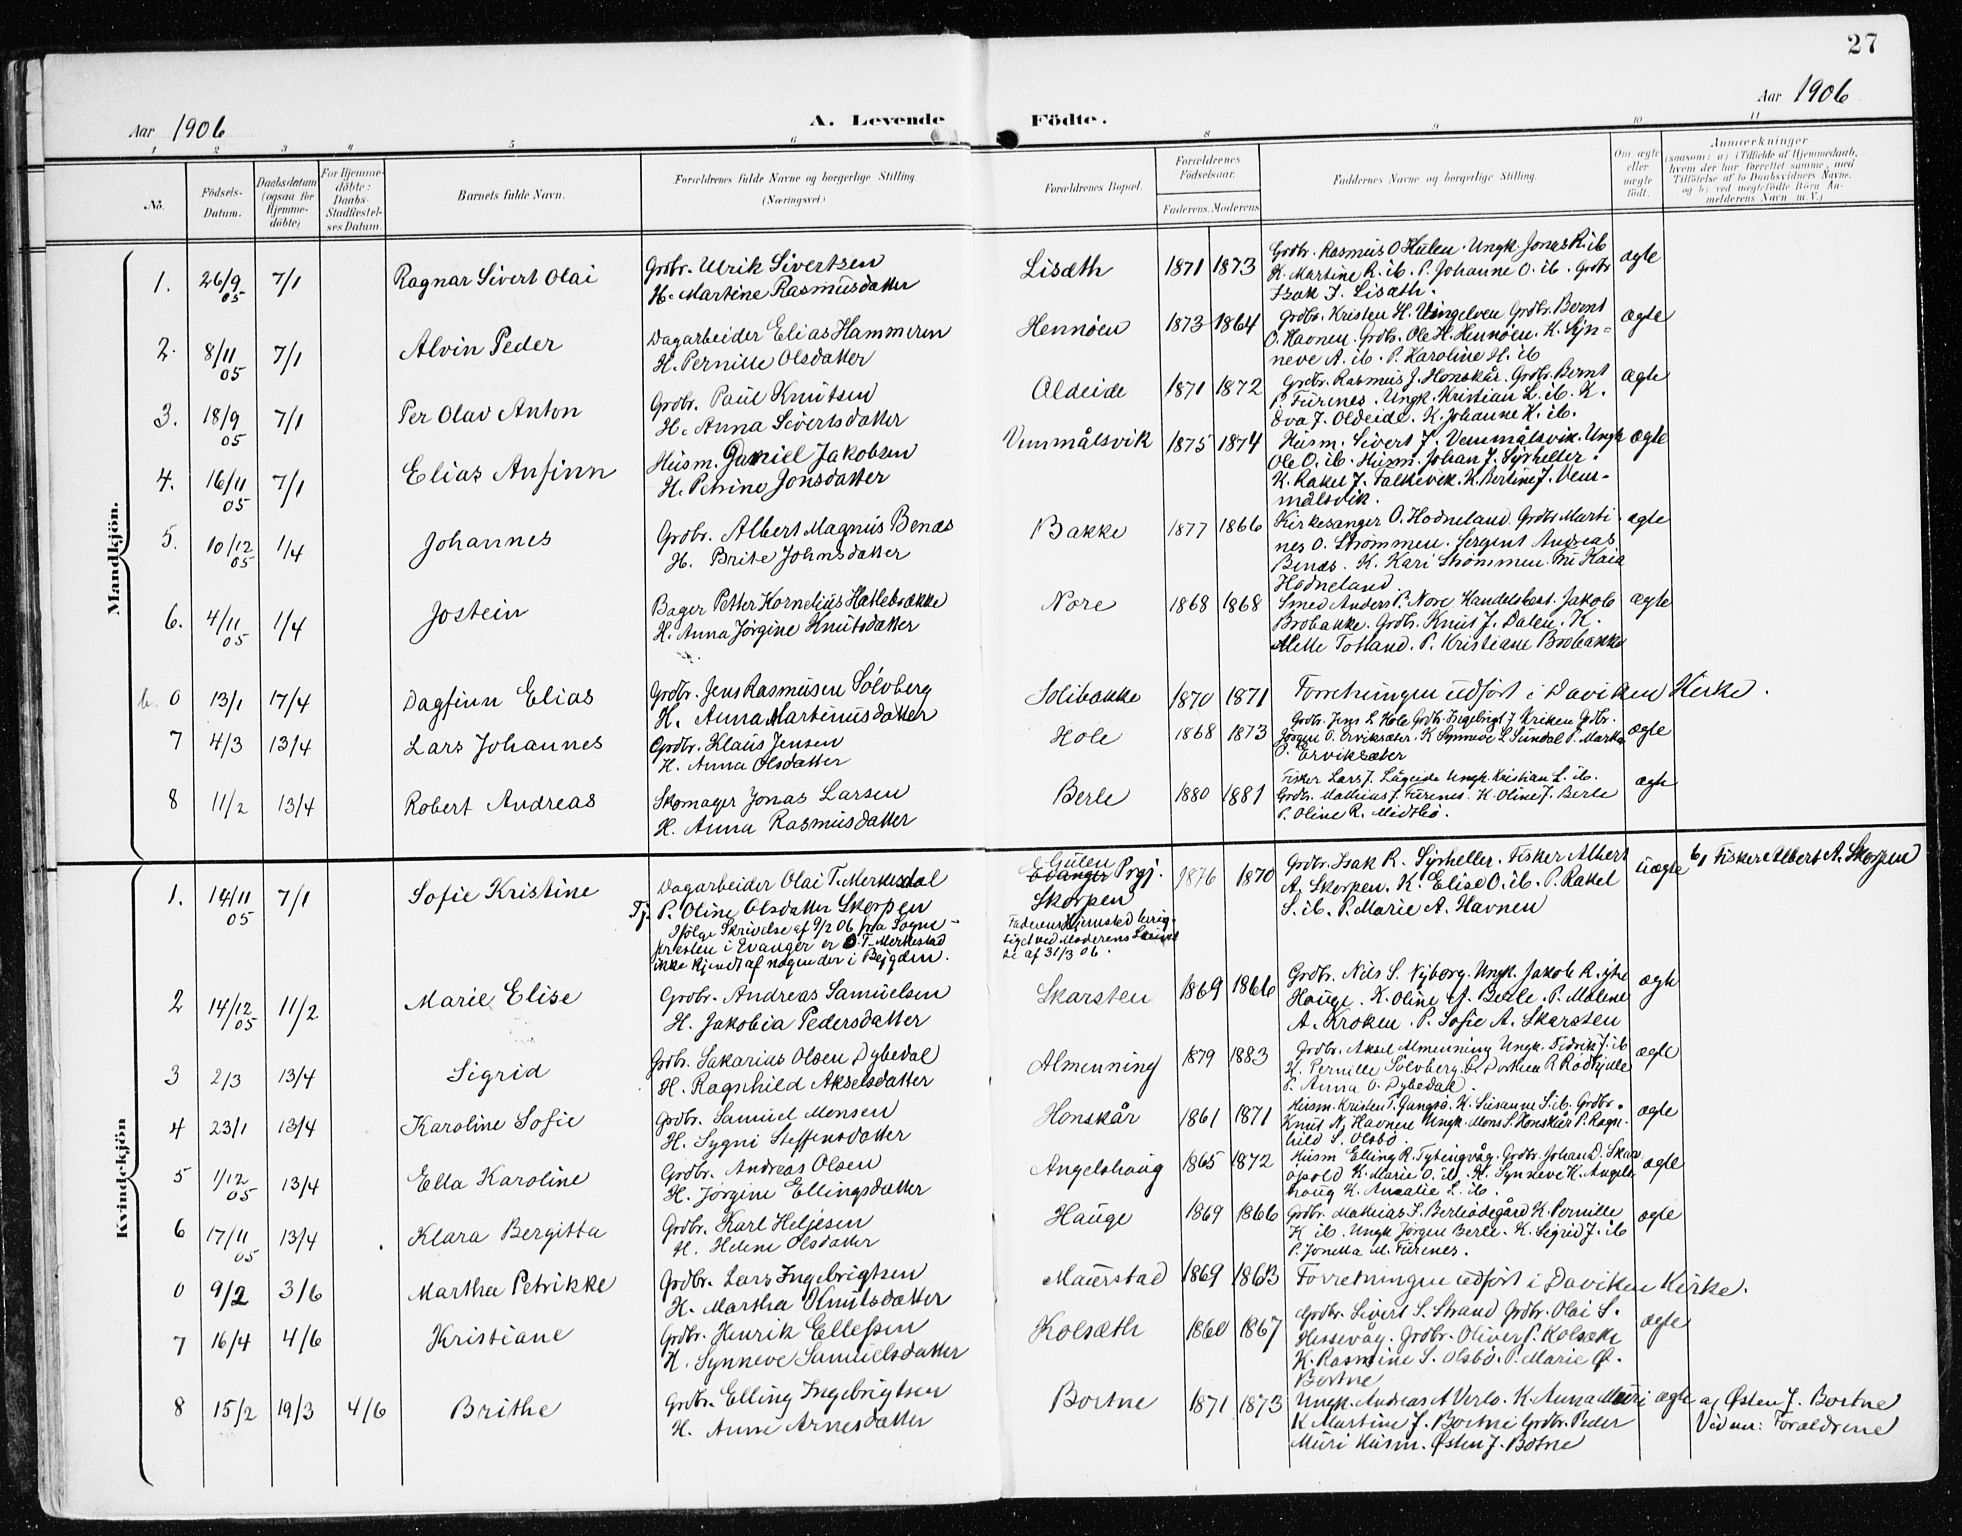 27
Aar 1906
A. Levende Födte.
Aar 1906
1 2 3 4 5 6 8 9 10 11
No.
Födsels-
Datum.
Daabsdatum
(ogsaa for
Hjemme-
döbte)
For Hjemme-
döbte:
Daabs-
Stadfæstel-
ses Datum.
Barnets fulde Navn.
Forældrenes fulde Navne og borgerlige Stilling.
(Næringsvei.)
Forældrenes Bopæl.
Forældrenes
Födselsaar.
Faderens. Moderens.
Faddernes Navne og borgerlige Stilling.
Om ægte
eller
uægte
födt.
Anmærkninger
(saasom: a) i Tilfælde af Hjemmedaab,
hvem der har forrettet samme, med
Tilföielse af to Daabsvidners Navne,
og b) ved uægtefödte Börn An-
melderens Navn m. V.)
Mandkjön.
1. 26/9 05 7/1 Ragnar Sivert Olai
Grdbr. Ulrik Sivertsen
H. Martine Rasmusdatter
Lisæth 1871 1873
Grdbr. Rasmus O Hulen. Ungk. Jonas R. ib
K. Martine R. ib. P. Johanne O. ib. Grdbr
Isak J. Lisæth.
ægte
2. 8/11 05 7/1 Alvin Peder
Dagarbeider Elias Hammeren
H. Pernille Olsdatter
Hennöen 1873 1864
Grdbr. Kristen H. Vingelven Grdbr. Bernt
O. Havnen. Grdbr. Ole H. Hennöen. K. Syn-
neve A. ib. P. Karoline H. ib
ægte
3. 18/9 05 7/1 Per Olav Anton
Grdbr. Paul Knutsen
H. Anna Sivertsdatter
Oldeide 1871 1872
Grdbr. Rasmus J. Honskår. Grdbr. Bernt
P. Furenes. Ungk. Kristian L. ib. K.
Eva J. Oldeide. K. Johanne K. ib.
ægte
4. 16/11 05 7/1 Elias Anfinn
Husm. Daniel Jakobsen
H. Petrine Jonsdatter
Vemmålsvik 1875 1874
Husm. Sivert J. Vemmålsvik. Ungk
Ole O. ib. Husm. Johan J. Syrheller.
K. Rakel J. Falkevik. K. Bertine J. Vem-
målsvik.
ægte
5. 10/12 05 1/4 Johannes
Grdbr. Albert Magnus Benæs
H. Brite Johnsdatter
Bakke 1877 1866
Kirkesanger O. Hodneland. Grdbr. Marti-
nes O. Strömmen. Sergent Andreas
Benæs. K. Kari Strömmen. Fru Kaia
Hodneland
ægte
6. 4/11 05 1/4 Jostein
Bager Petter Kornelius Hatlebrække
H. Anna Jörgine Knutsdatter
Nore 1868 1868
Smed Anders P. Nore. Handelsbest. Jakob
Brobakke. Grdbr. Knut J. Dalen. K.
Mette Totland. P. Kristiane Brobakke
ægte
0 13/1 17/4 Dagfinn Elias
Grdbr. Jens Rasmusen Sölvberg
H. Anna Martinusdatter
Solibakke 1870 1871
Forretningen udfört i Daviken Kirke.
7 4/3 13/4 Lars Johannes
Grdbr. Klaus Jensen
H. Anna Olsdatter
Hole 1868 1873
Grdbr. Jens L. Hole Grdbr. Ingebrigt J Kriken Grdbr.
Jörgen O. Erviksæter. K Synneve L Sundal P. Marta
O. Erviksæter
ægte
8 11/2 13/4 Robert Andreas
Skomager Jonas Larsen
H. Anna Rasmusdatter
Berle 1880 1881
Fisker Lars J. Lågeide Ungk. Kristian L. ib.
Grdbr. Mathias J. Furenes. K. Oline J. Berle
P. Oline R. Midtbö.
ægte
Kvindekjön
1. 14/11 05 7/1 Sofie Kristine
Dagarbeider Olai T. Merkesdal
Tj. P. Oline Olsdatter Skorpen
Ifölge Skrivelse af 9/2 06 fra Sogne-
presten i Evanger er O. T. Merkestad
ikke kjendt af nogen der i Bejgden.
Gulen
Evanger Prgj.
Skorpen
Faderens Hjemstad
af 31/3 06.
1876 1870
Grdbr. Isak R. Syrheller. Fisker Albert
A. Skorpen. K. Elise O. ib. P. Rakel
S. ib. P. Marie A. Havnen
uægte
b) Fisker Albert A. Skorpen
2 14/12 05 11/2 Marie Elise
Grdbr. Andreas Samuelsen
H. Jakobia Pedersdatter
Skarsten 1869 1866
Grdbr. Nils S. Nyborg. Ungk. Jakob R. ytre
Hauge. K. Oline A. Berle. P. Malene
A. Kroken. P. Sofie A. Skarsten
ægte
3 2/3 13/4 Sigrid
Grdbr. Sakarias Olsen Dybedal
H. Ragnhild Akselsdatter
Almenning 1879 1883
Grdbr. Aksel Almenning Ungk. Fedrik J. ib
K. Pernille Sölvberg P. Dorthea R Rödkjelle
P. Anna O. Dybedal.
ægte
4 23/1 13/4 Karoline Sofie
Grdbr. Samuel Monsen
H. Sygni Steffensdatter
Honskår 1861 1871
Husm. Kristen P. Gangsö. K. Susanne S. ib. Grdbr.
Knut N. Havnen Ungk. Mons S. Honskår P. Ragn-
hild S. Olsbö.
ægte
5 1/12 05 13/4 Ella Karoline
Grdbr. Andreas Olsen
H. Jörgine Ellingsdatter
Angelshaug 1865 1872
Husm Elling R. Tytingvåg. Grdbr. Johan D.
K. Marie O. ib. K. Synneve K. Angels-
haug K. Amalie L. ib.
ægte
6 17/11 05 13/4 Klara Bergitta
Grdbr. Karl Heljesen
H. Helene Olsdatter
Hauge 1869 1866
Grdbr. Mathias S. Berleödegård K. Pernille
K ib. Ungk Jörgen Berle. K. Sigrid J. ib
P. Jonetta M. Furenes.
ægte
0 9/2 3/6 Martha Petrikke
Grdbr. Lars Ingebrigtsen
H. Martha Knutsdatter
Maurstad 1869 1863
Forretningen udfört i Daviken Kirke.
7 16/4 4/6 Kristiane
Grdbr. Henrik Ellefsen
H. Synneve Samuelsdatter
Kolsæth 1860 1867
Grdbr. Sivert S. Strand Grdbr. Olai S.
Hessevåg. Grdbr. Oliver P. Kolsæth
K. Rasmine S. Olsbö. P. Marie Ø.
Bortne
ægte
8 15/2 19/3 4/6 Brithe
Grdbr. Elling Ingebrigtsen
H. Anne Arnesdatter
Bortne 1871 1873
Ungk. Andreas A Verlo. K. Anna Muri
K Martine J. Bortne Grdbr. Peder
Muri Husm. Østen J. Botne
ægte
a) Østen J. Bortne
Vidner: Forældrene